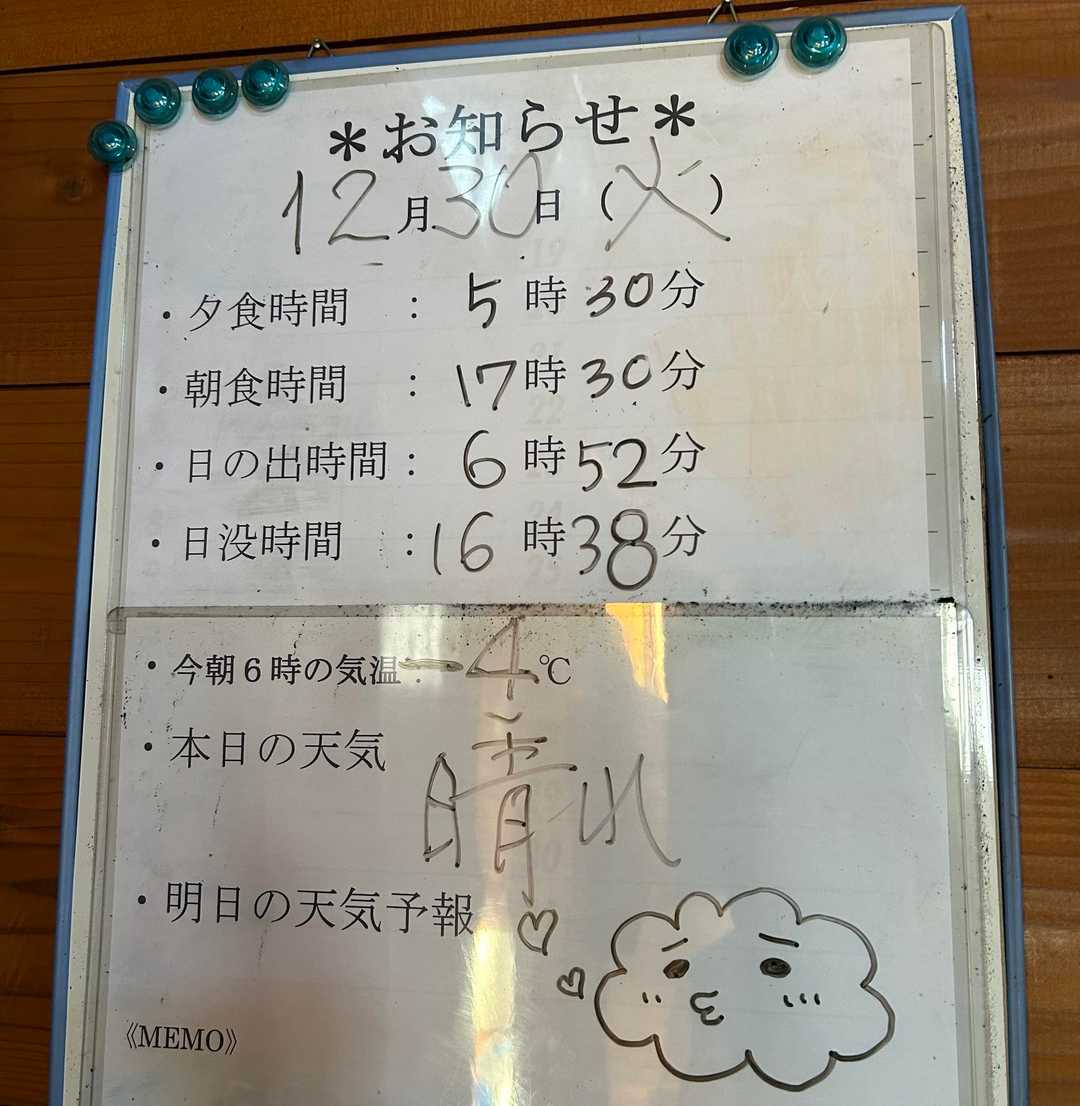 *お知らせ*
12月30日(火)
・夕食時間 : 5時30分
・朝食時間 : 17時30分
・日の出時間 : 6時52分
・日没時間 : 16時38分
・今朝6時の気温: -4℃
・本日の天気
晴れ
・明日の天気予報
《MEMO》